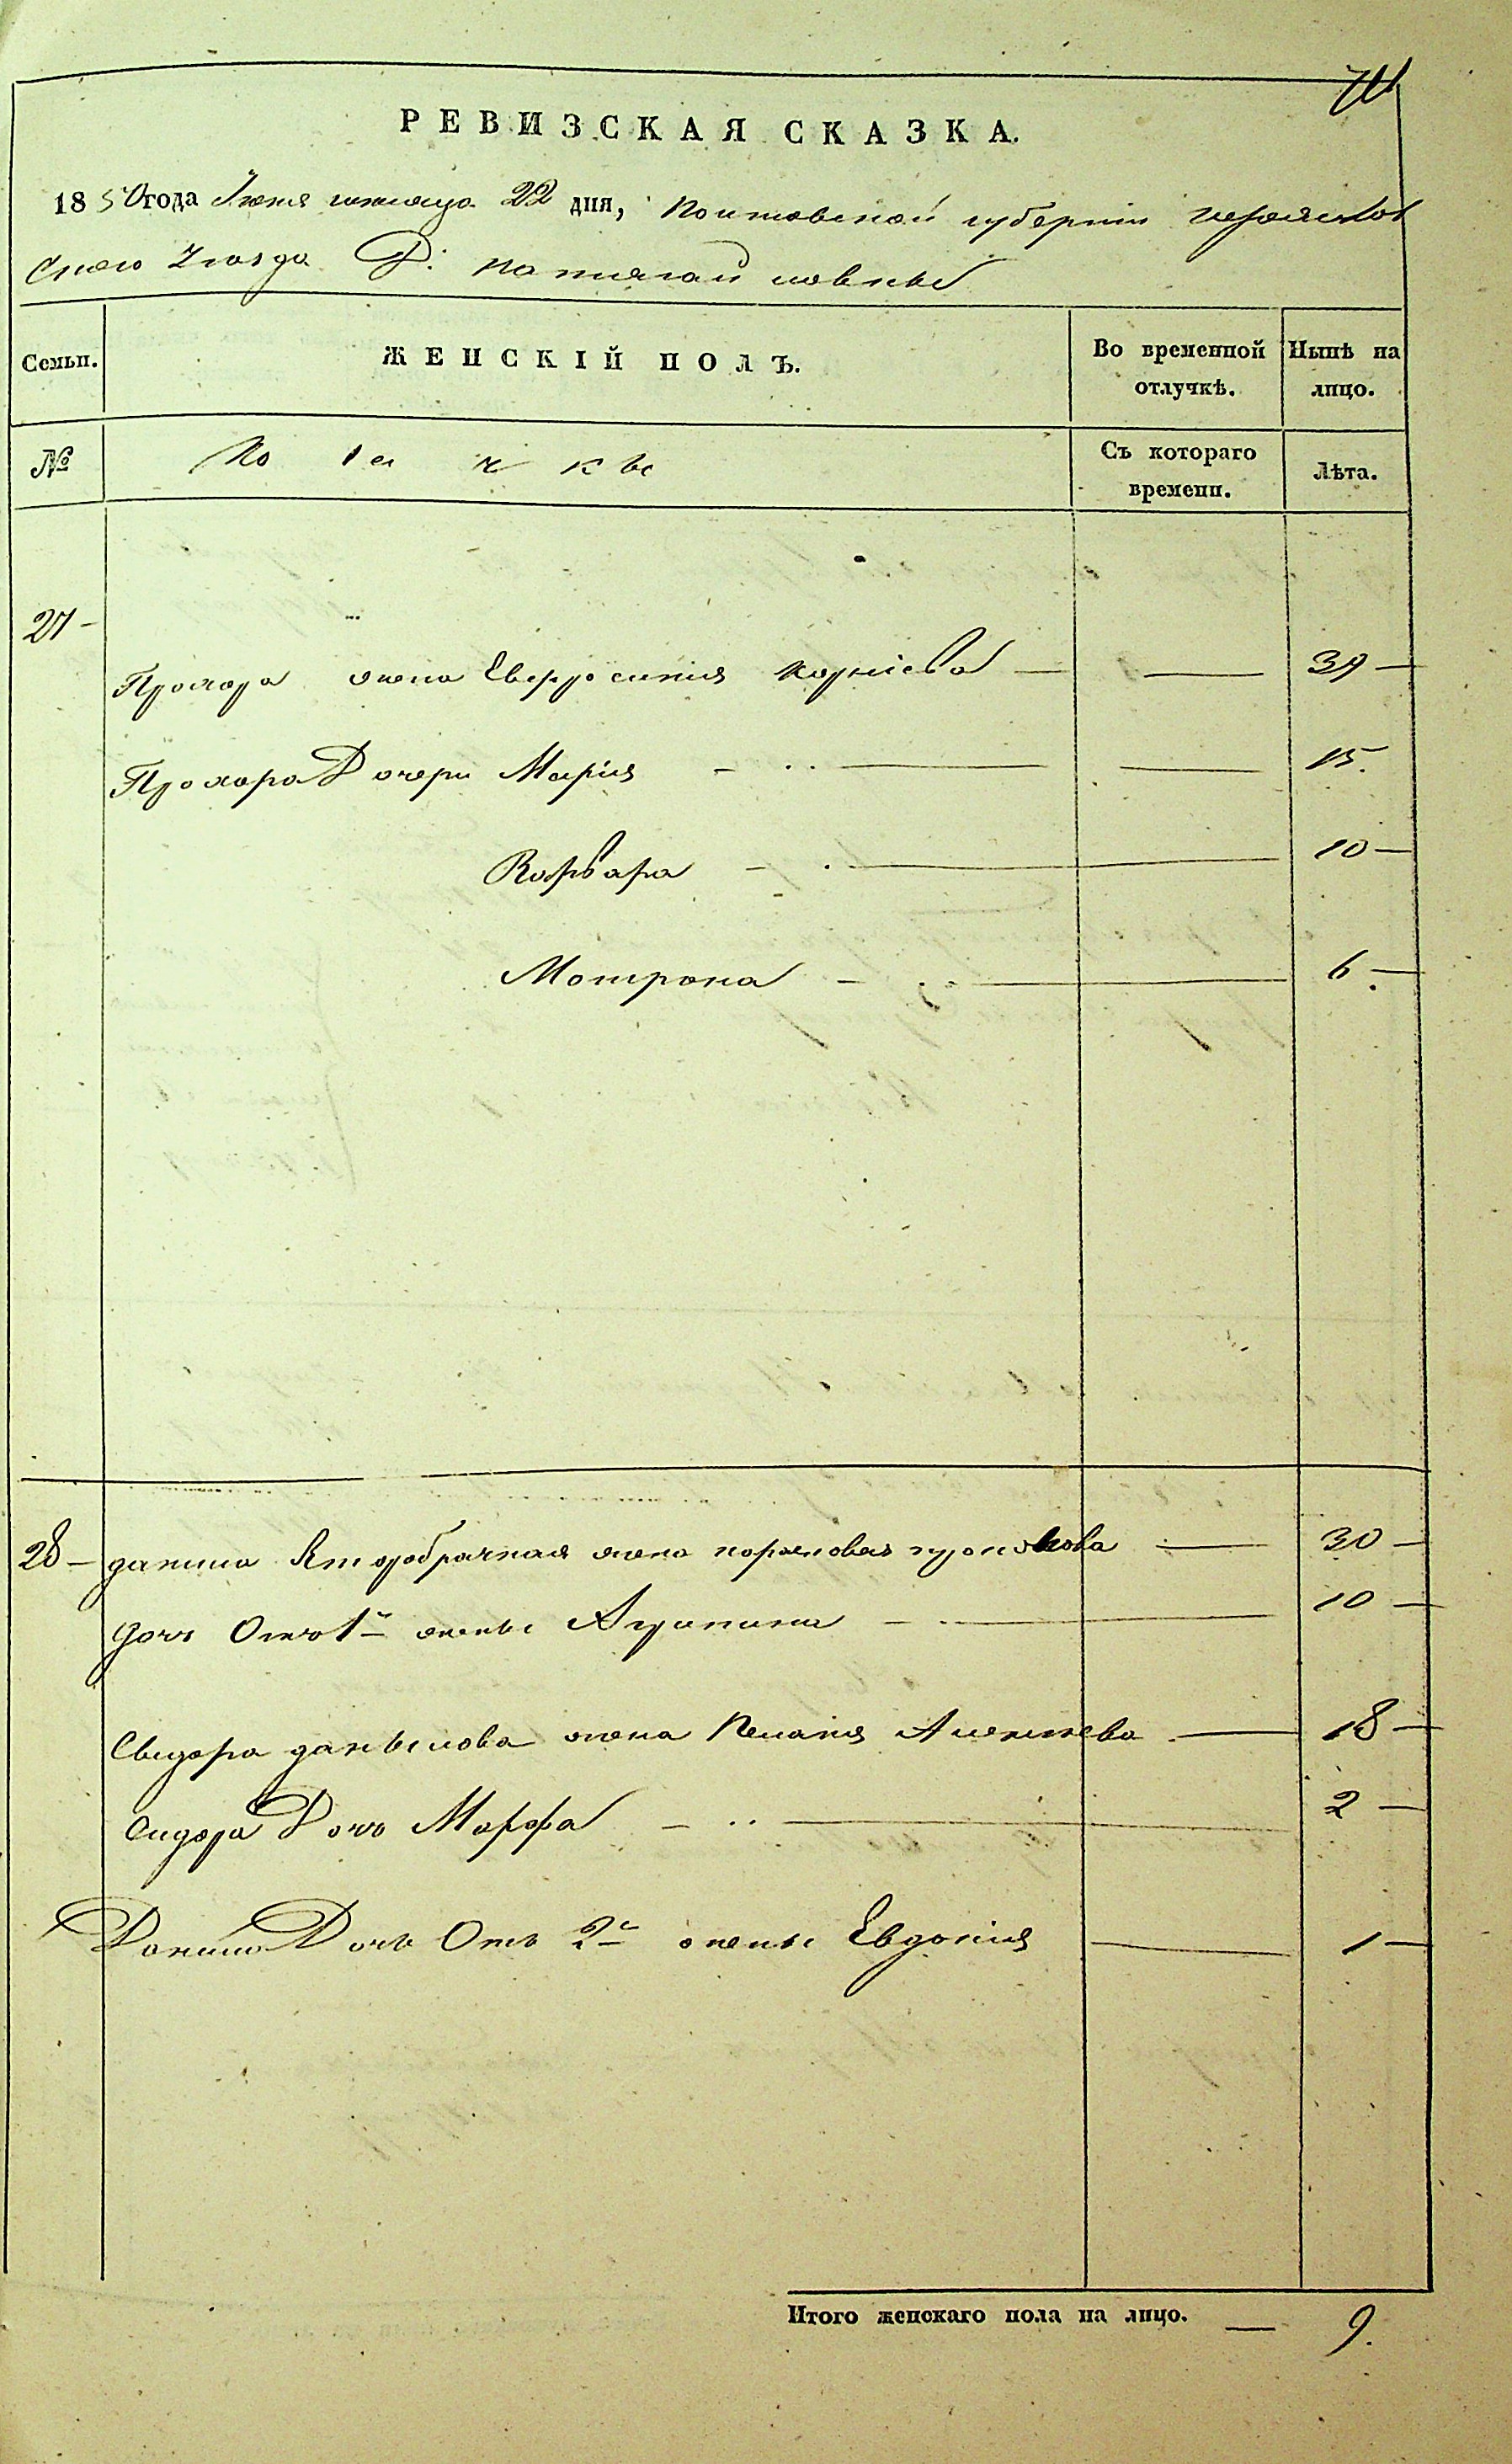 РЕВИЗСКАЯ СКАЗКА.
1850 года Июня месяца 22 дня, Полтавской губернии
ского уезда Д:
Семьи. ЖЕНСКІЙ ПОЛЪ. Во временной отлучкѣ. Нынѣ на лицо.
№ Козачки Съ котораго времени. Лѣта.
27 —
Прохора жена Евфросинія Корніева — — 39 —
Прохора Дочери Марія — — 15.
Варвара — 10 —
Мотрона — 6 —
28 — данила Второбрачная жена — 30 —
дочь Отъ 1й жены Агрипина — 10 —
Свидора данылова жена Пелагия Алексеева — 18 —
Сидора Дочь Марфа — 2 —
Данила Дочь Отъ 2й жены Евдокія — 1 —
Итого женскаго пола на лицо. — 9.